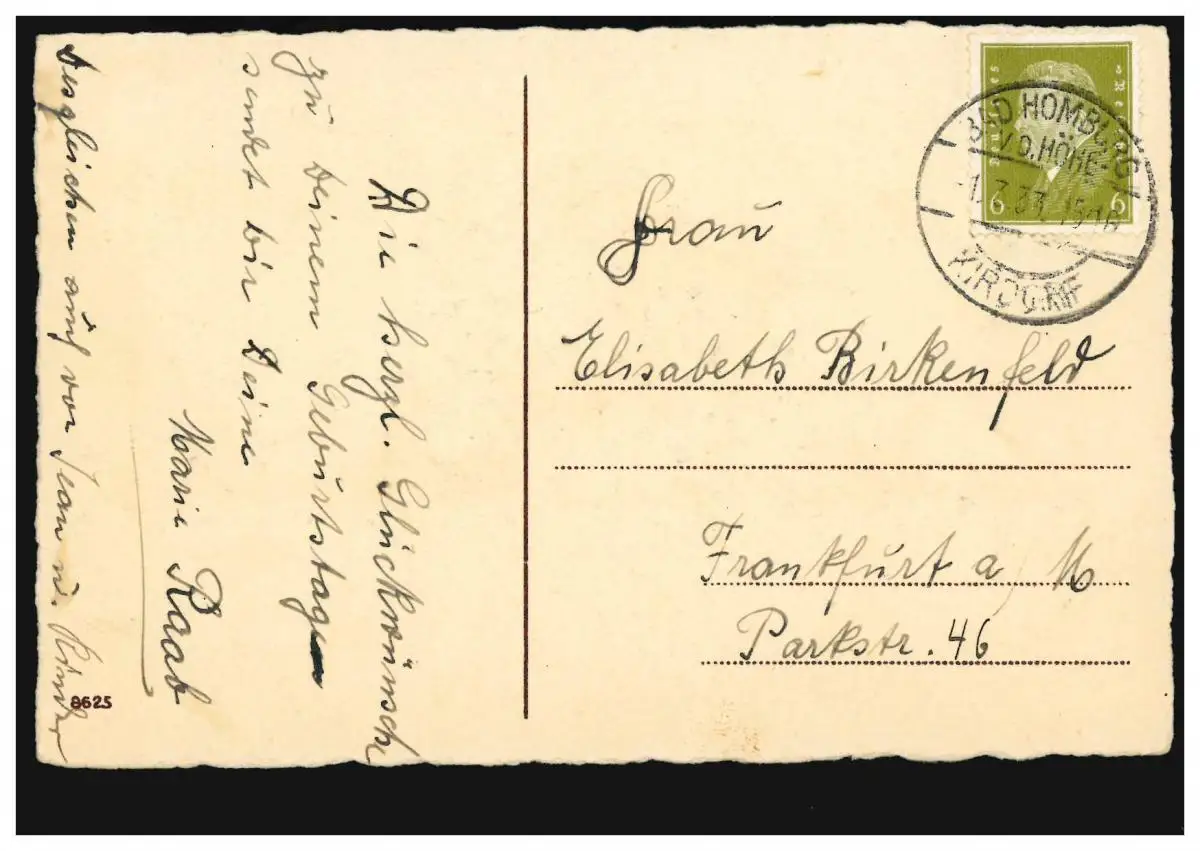 Die herzl. Glückwünsche
zu Deinem Geburtstage
sendet dir Deine
Marie Raab
desgleichen auch von Jean u. Kinder
8625
Deutsches Reich
6 6
BAD HOMBURG
v.d. HÖHE
-1.3.33. 15-16
KIRDORF
Frau
Elisabeth Birkenfeld
Frankfurt a M
Parkstr. 46